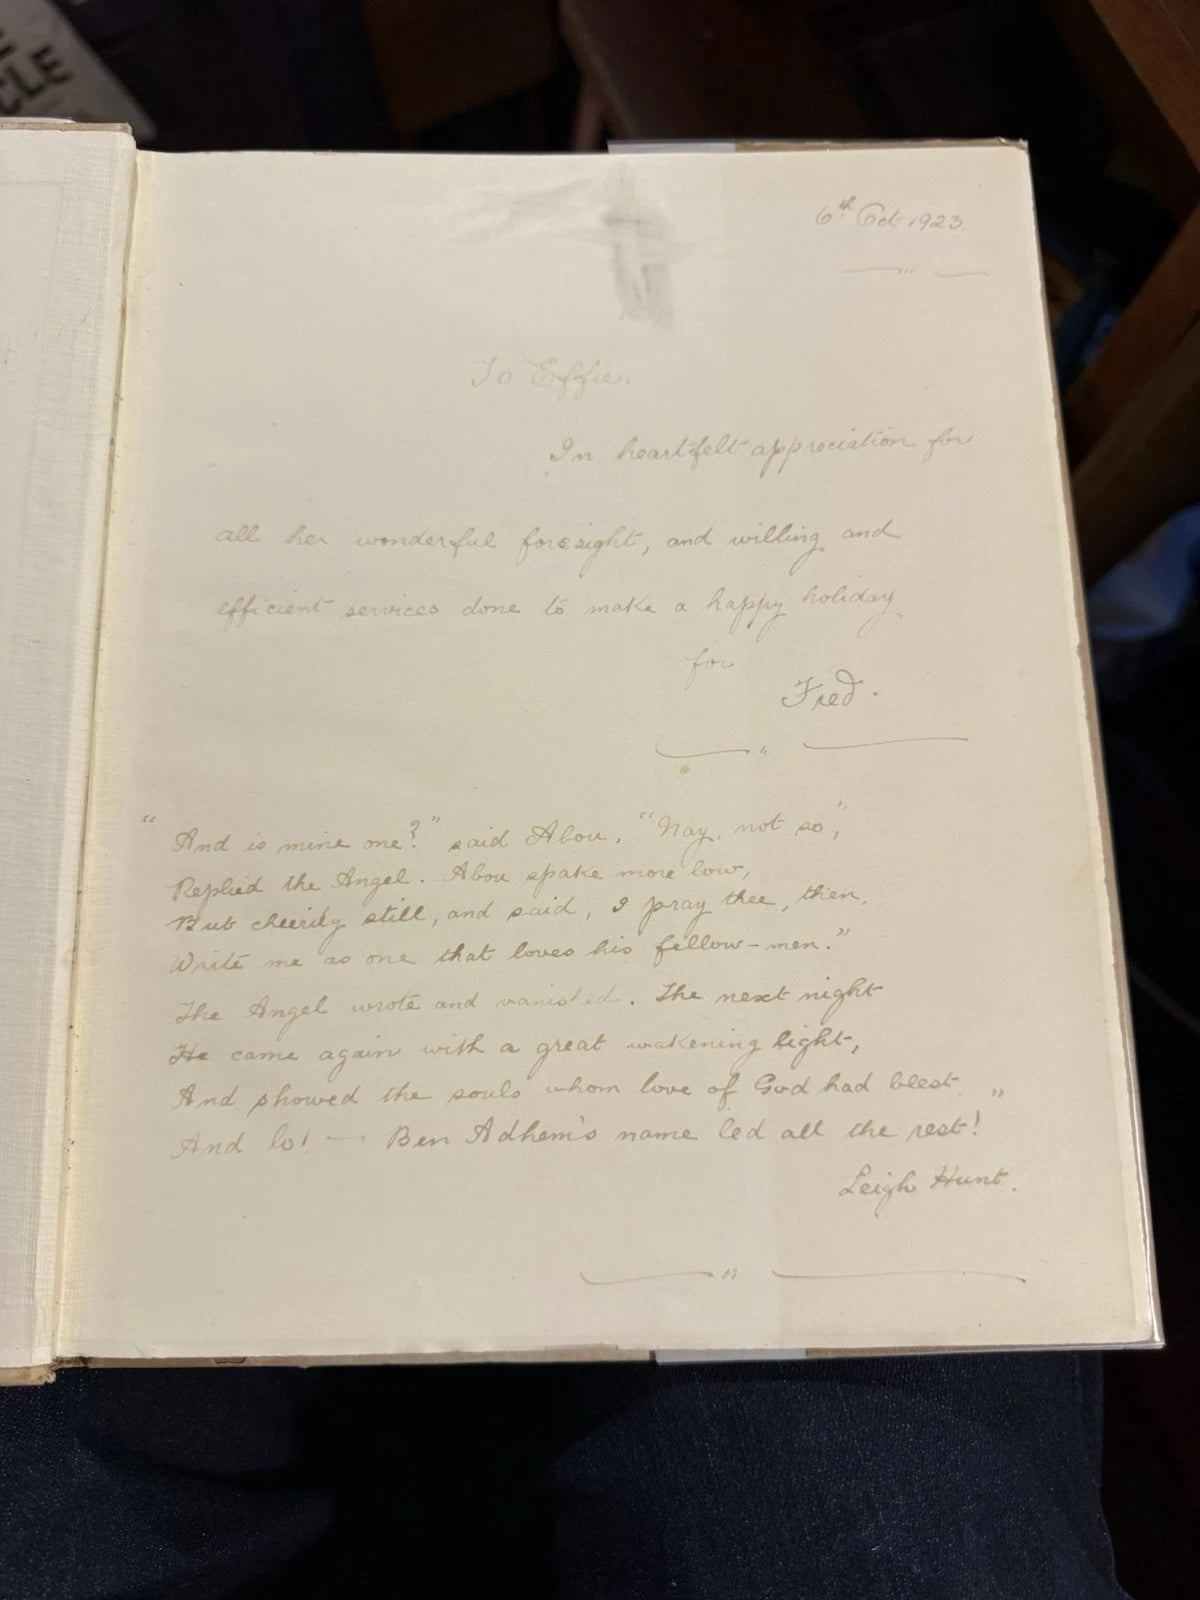 CLE
6th Oct. 1923.
To Effie.
In heartfelt appreciation for
all her wonderful foresight, and willing and
efficient services done to make a happy holiday
for
Fred.
"And is mine one?" said Abou. "Nay, not so",
Replied the Angel. Abou spake more low,
But cheerily still, and said, I pray thee, then,
Write me as one that loves his fellow-men."
The Angel wrote and vanished. The next night
He came again with a great wakening light,
And showed the souls whom love of God had blest,
And lo! — Ben Adhem's name led all the rest!"
Leigh Hunt.